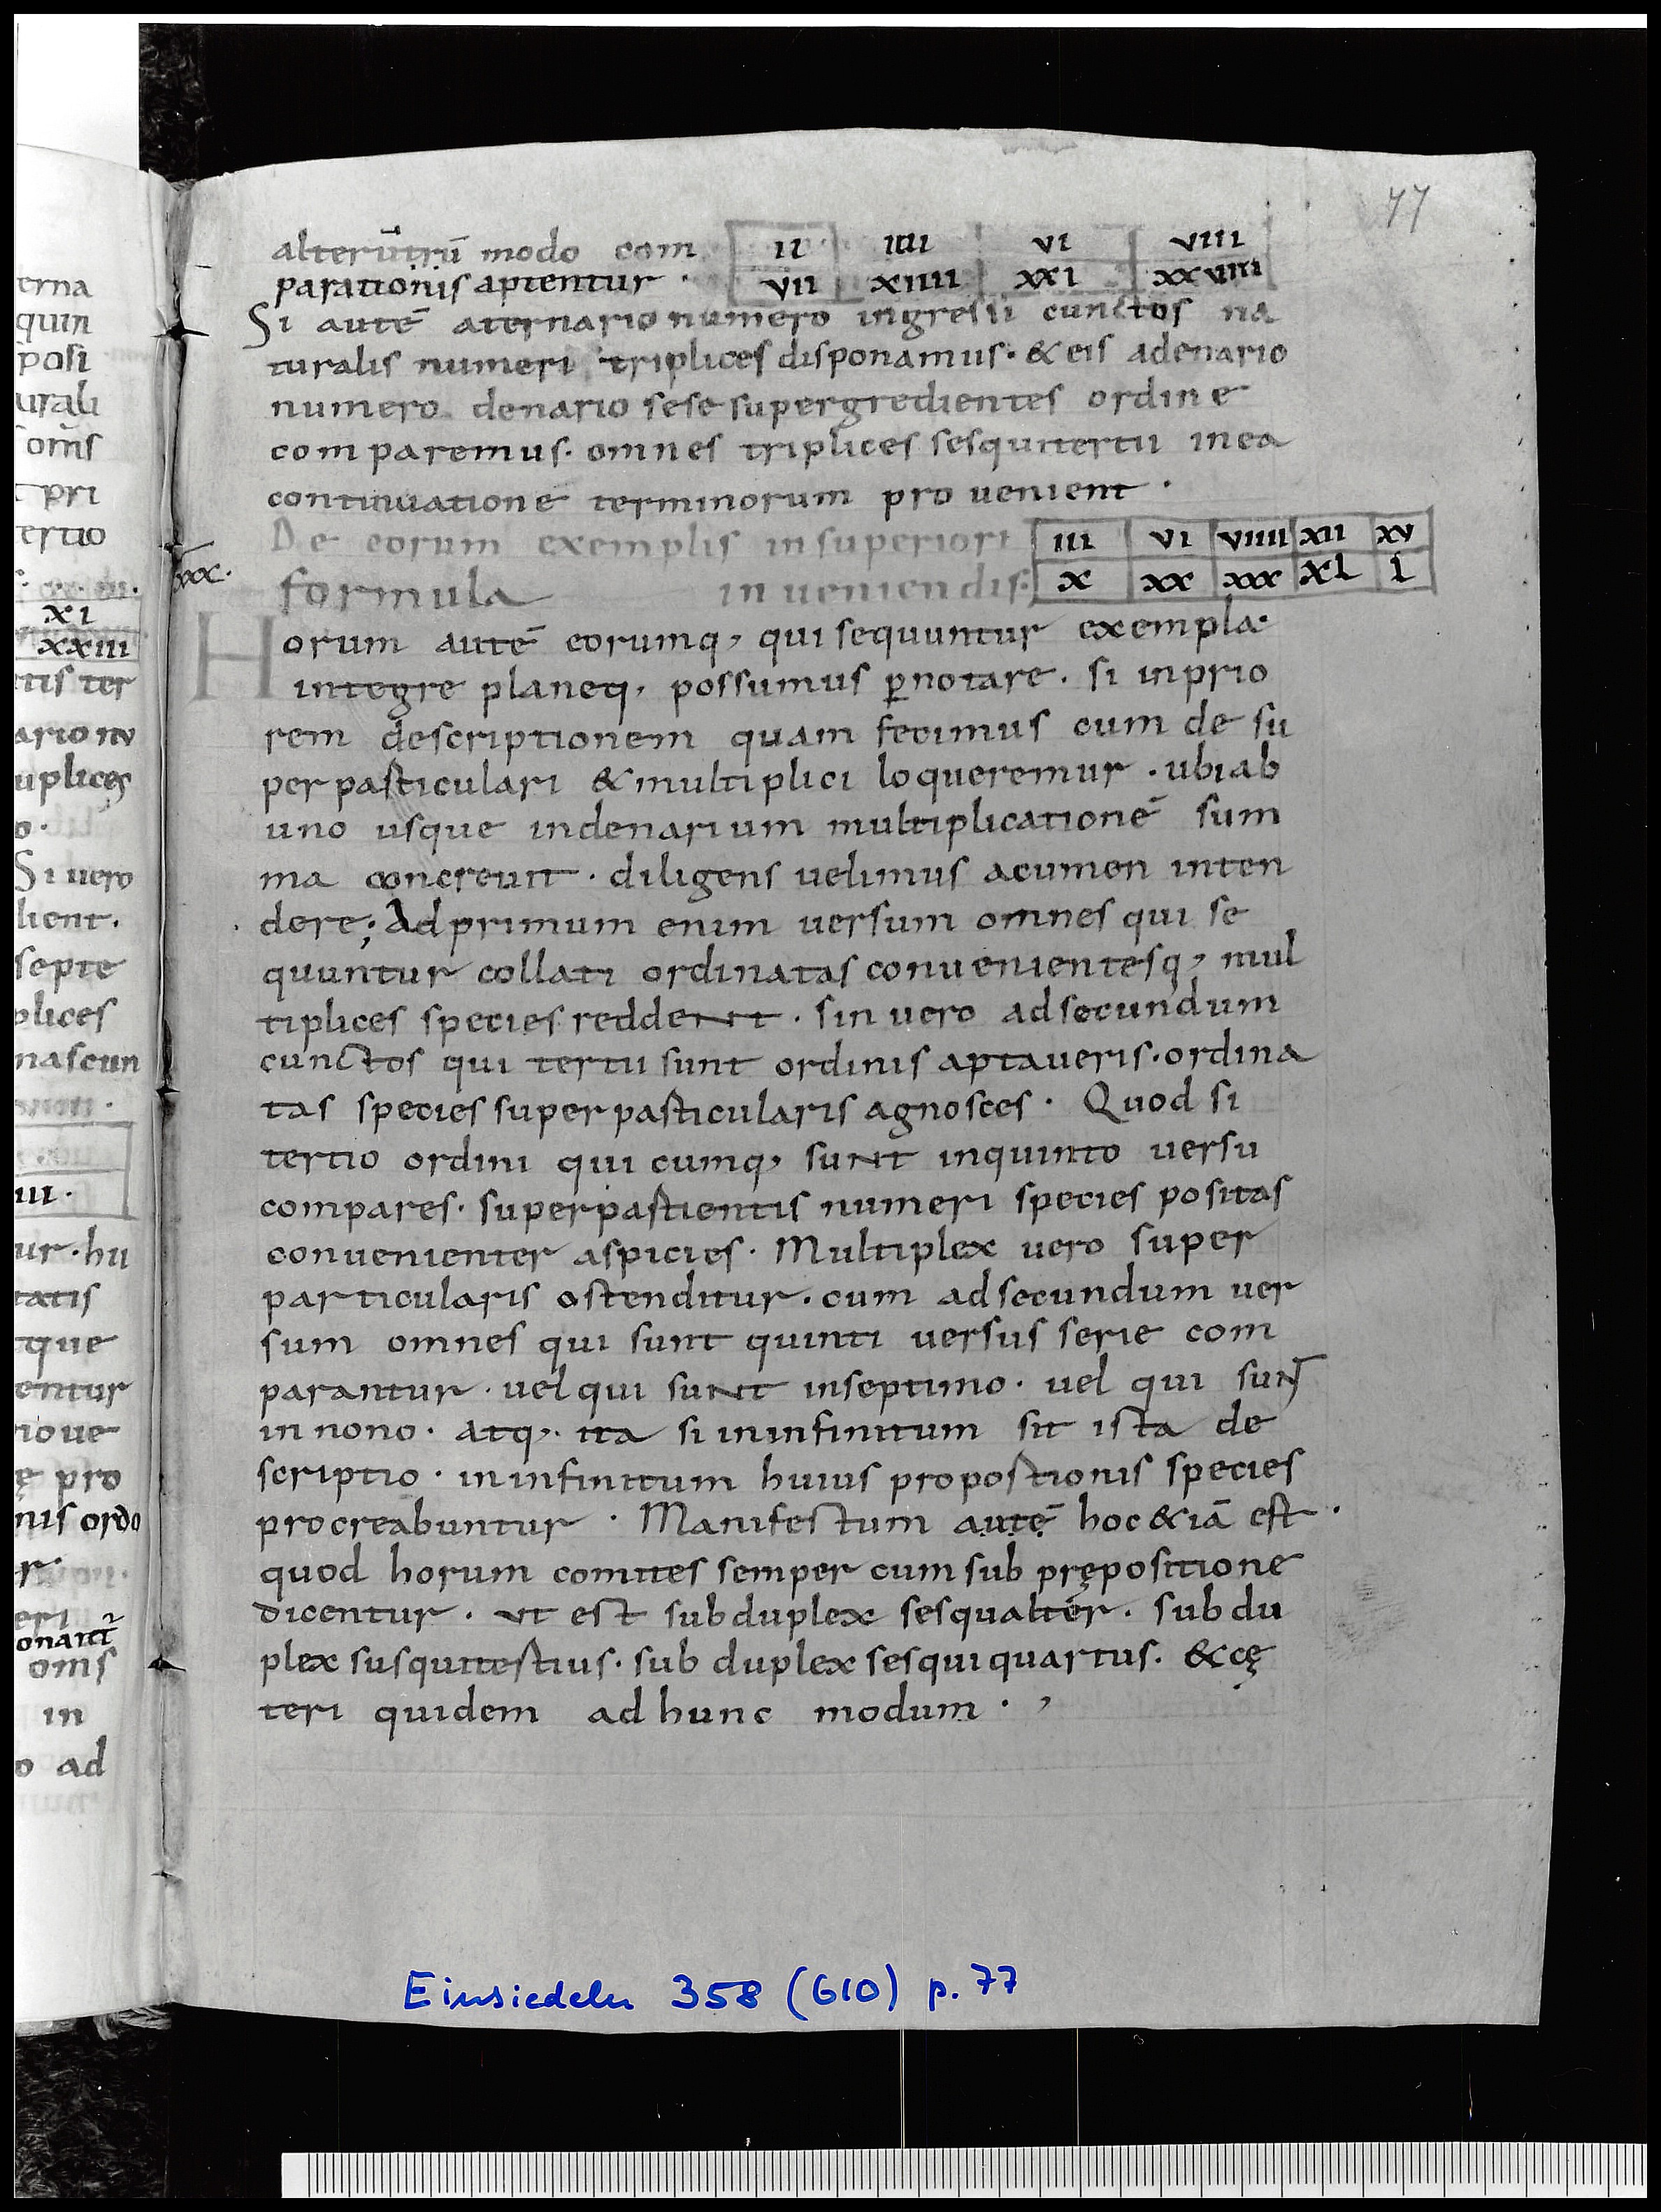 77
alterutrū modo com
parationis aptentur ·
II IIII VI VIII
VII XIIII XXI XXVIII
Si autē aternario numero ingressi cunctos na
turalis numeri triplices disponamus · & eis adenario
numero denario sese supergredientes ordine
comparemus · omnes triplices sesquitertii inea
continuatione terminorum pro uenient ·
De eorum exemplis insuperiori
formula inueniendis:
III VI VIIII XII XV
X XX XXX XL L
xxx.
Horum autē eorumq, qui sequuntur exempla·
integre planeq, possumus p̱notare · si inprio
rem descriptionem quam fecimus cum de su
perparticulari & multiplici loqueremur · ubi ab
uno usque indenarium multiplicatione sum
ma concreuit · diligens uelimus acumen inten
dere; Ad primum enim uersum omnes qui se
quuntur collati ordinatas conuenientesq, mul
tiplices species reddent · sin uero adsecundum
cunctos qui tertii sunt ordinis aptaueris · ordina
tas species superparticularis agnosces · Quod si
tertio ordini qui cumq, sunt inquinto uersu
compares · superpartientis numeri species positas
conuenienter aspicies · Multiplex uero super
particularis ostenditur · cum adsecundum uer
sum omnes qui sunt quinti uersus serie com
parantur · uel qui sunt inseptimo · uel qui sunt
in nono · atq, · ita si ininfinitum sit ista de
scriptio · ininfinitum huius proportionis species
procreabuntur · Manifestum autē hoc &iā est ·
quod horum comites semper cum sub prępositione
dicentur · ut est subduplex sesqualter · subdu
plex susquitertius · sub duplex sesquiquartus · & cę
teri quidem ad hunc modum · ,
erna
quin
posi
urali
om̄s
pri
ertio
XI
XXIII
tis ter
ario nu
uplices
o ·
Si uero
lient ·
septe
plices
nascun
III ·
ur · hu
tatis
que
entur
ioue
ę pro
nis ordo
r
eri
om̄s
in
o ad
Einsiedeln 358 (610) p. 77